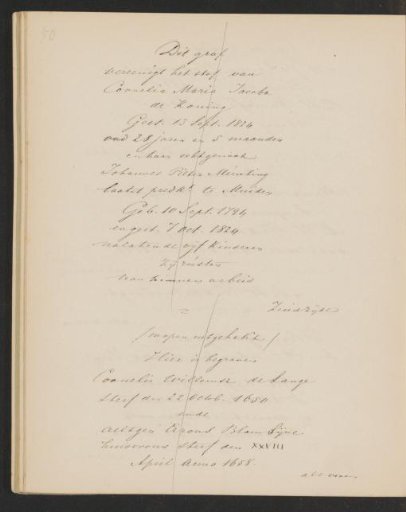 50
Dit graf
vereenigt het stof van
Cornelia Maria Jacoba
de Koning
Gest. 13 Sept. 1824
oud 28 jaren en 5 maanden
en haar echtgenoot
Johannes Pieter
laatst predkt te Muiden
Geb. 10 Sept. 1794
en gest. 7 Oct. 1824
nalatende vijf kinderen
Zij rusten
van hunnen arbeid
=
Zuidzijde
(wapen uitgehakt)
Hier is begraven
Cornelis Willemsz de Lange
sterf den 22 Octob. 1650
ende
Aeltgen Arons Blom Sijne
huisvrou sterf den XXVIII
April Anno 1658